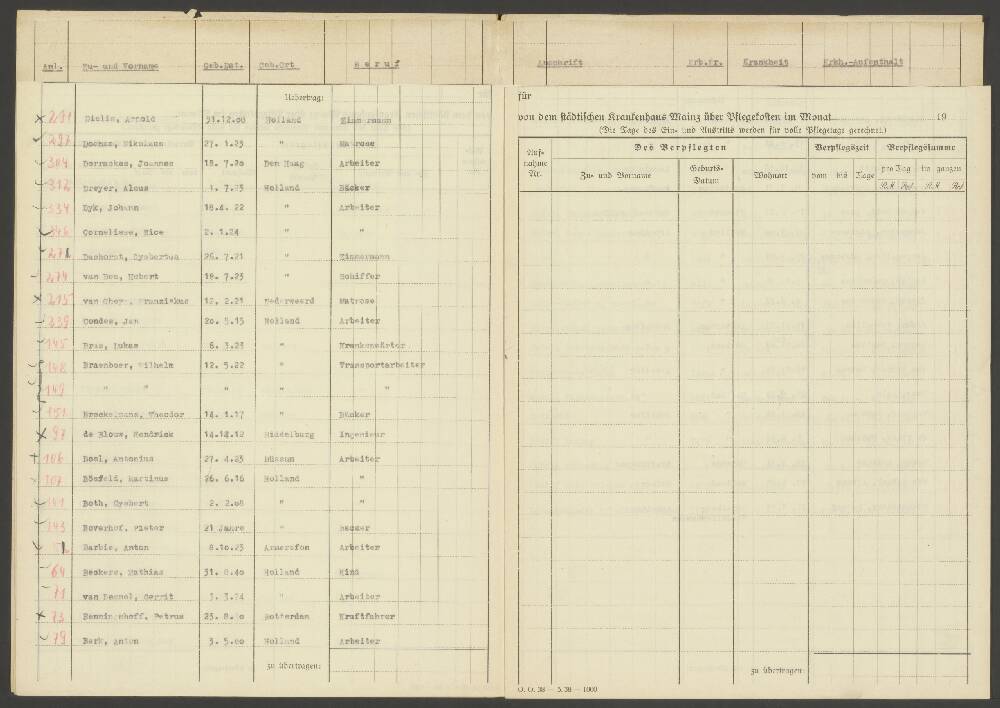 Anl. Zu- und Vorname Geb.Dat. Geb.Ort Beruf
Anschrift Krankheit Krkh.-Aufenthalt
Uebertrag:
291 Dielis, Arnold 31.12.08 Holland Zimmermann
297 Nikolaus 27. 1.23 " Matrose
304 Joannes 18. 7.20 Den Haag Arbeiter
312 Dreyer, Alous 1. 7.23 Holland Bäcker
334 Dyk, Johann 18.4. 22 " Arbeiter
346 Corneliese, Rice 2. 1.24 " "
271 26. 7.21 " Zimmermann
274 van Den, Hubert 18. 7.23 " Schiffer
215 Franziskus 12. 2.21 Nederweerd Matrose
239 Condes, Jan 20. 5.15 Holland Arbeiter
145 Bras, Lukas 8. 3.23 " Krankenwärter
148 Braenboer, Wilhelm 12. 5.22 " Transportarbeiter
149 " " " " "
151 Brockelmans, Theodor 14. 1.17 " Bäcker
97 de Blouw, Hendrick 14.12.12 Middelburg Ingenieur
106 Boel, Antonius 27. 4.23 Büssum Arbeiter
107 Martinus 26. 6.16 Holland "
141 Both, Gysbert 2. 2.08 " "
143 Boverhof, Pieter 21 Jahre " Bäcker
Barbie, Anton 8.10.23 Amersfon Arbeiter
64 Beckers, Mathias 31. 8.40 Holland Kind
71 van Gerrit 3. 3.24 " Arbeiter
73 Petrus Rotterdam Kraftfahrer
79 Berk, Anton 3. 5.00 Holland Arbeiter
zu übertragen:
für
von dem städtischen Krankenhaus Mainz über Pflegekosten im Monat 19
(Die Tage des Ein- und Austritts werden für volle Pflegetage gerechnet.)
Auf-
nahme
Nr.
Des Verpflegten Verpflegszeit Verpflegssumme
Zu- und Vorname Geburts-
Datum Wohnort vom bis Tage pro Tag im ganzen
R.M. Rpf. R.M. Rpf.
zu übertragen:
O. O. 38 — 5. 38 — 1000